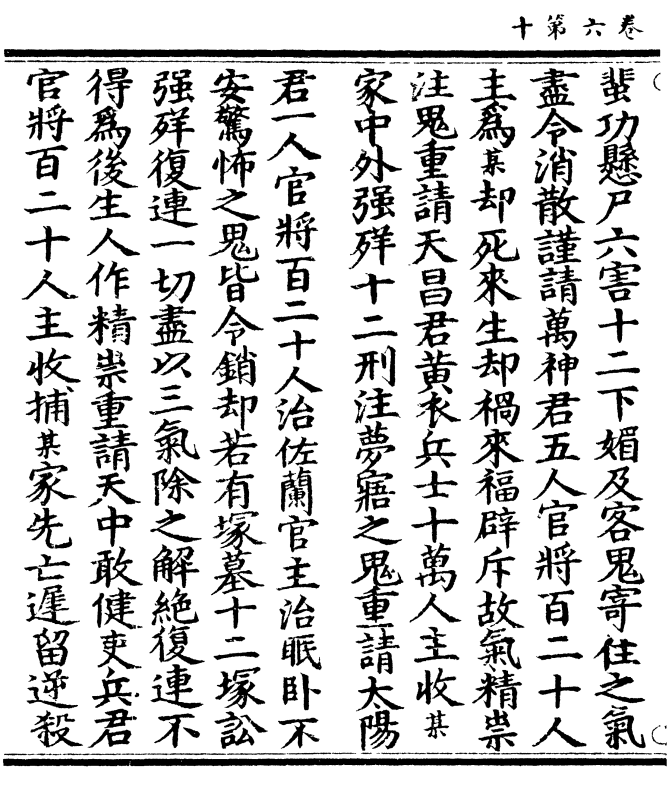 卷六第十
蜚功懸尸六害十二下媚及客鬼寄住之氣
盡令消散謹請萬神君五人官將百二十人
主爲某却死來生却禍來福辟斥故氣精祟
注鬼重請天昌君黄衣兵士十萬人主收某
家中外强殍十二刑注夢寤之鬼重請太陽
君一人官將百二十人治佐蘭官主治眠卧不
安驚怖之鬼皆令銷却若有塚墓十二塚訟
强殍復連一切盡以三氣除之解絶復連不
得爲後生人作精祟重請天中敢健吏兵君
官將百二十人主收捕某家先亡遲留逆殺